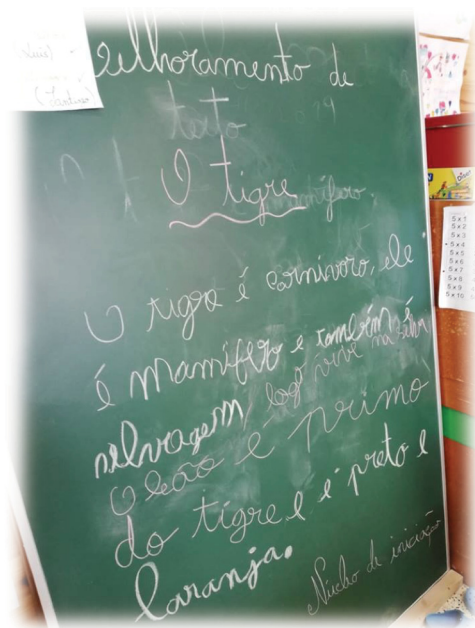 (Luís)
Melhoramento de
texto
O tigre
mamífero.
O tigre é carnívoro, ele
é mamífero e também é
selvagem, logo vive na selva
O leão é primo
do tigre e é preto e
laranja.
Núcleo de iniciação
5 x 1
5 x 2
5 x 3
5 x 4
5 x 5
5 x 6
5 x 7
5 x 8
5 x 9
5 x 10